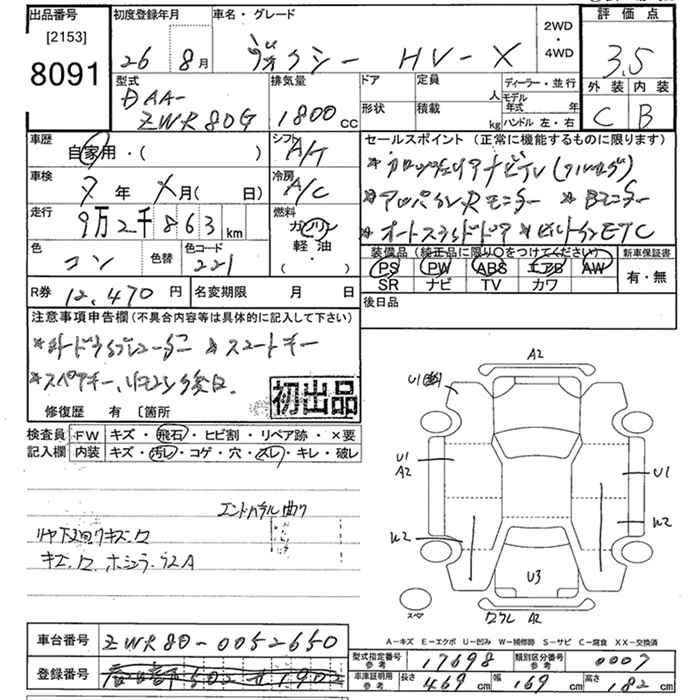 出品番号
[2153]
8091
初度登録年月
26 8月
車名・グレード
ヴォクシー HV-X
2WD
・
4WD
評価点
3.5
外装 内装
C B
型式
DAA-
ZWR80G
排気量
1800 CC
ドア 定員 人
形状 積載 kg
ディーラー・並行
モデル年式 年
ハンドル 左・右
車歴
自家用・( )
シフト
A/T
車検
年 月( 日)
冷房
A/C
走行
9万2千863 km
燃料
ガソリン
軽油
・
( )
色 色替 色コード
221
R券 12,470 円
名変期限 月 日
セールスポイント (正常に機能するものに限ります)
*アルパインRモニター *Bモニター
*オートスライドドア *ビルトインETC
装備品(純正品に限り○をつけてください)
PS PW ABS エアB AW
SR ナビ TV カワ
新車保証書
有・無
後日品
注意事項申告欄(不具合内容等は具体的に記入して下さい)
*スマートキー
*スペアキー、リモコン後日
初出品
修復歴 有 〔箇所
検査員 FW キズ・飛石・ヒビ割・リペア跡・×要
記入欄 内装 キズ・汚レ・コゲ・穴・スレ・キレ・破レ
エンドパネル曲り
A2
U1
U1
A2
U1
W2
W2
U3
スペア
A2
A-キズ E-エクボ U-凹み W-補修跡 S-サビ C-腐食 XX-交換済
車台番号 ZWR80-0052650
登録番号
型式指定番号 参考 17698
類別区分番号 参考 0007
車庫証明用 参考 長さ 469 cm 幅 169 cm 高さ 182 cm